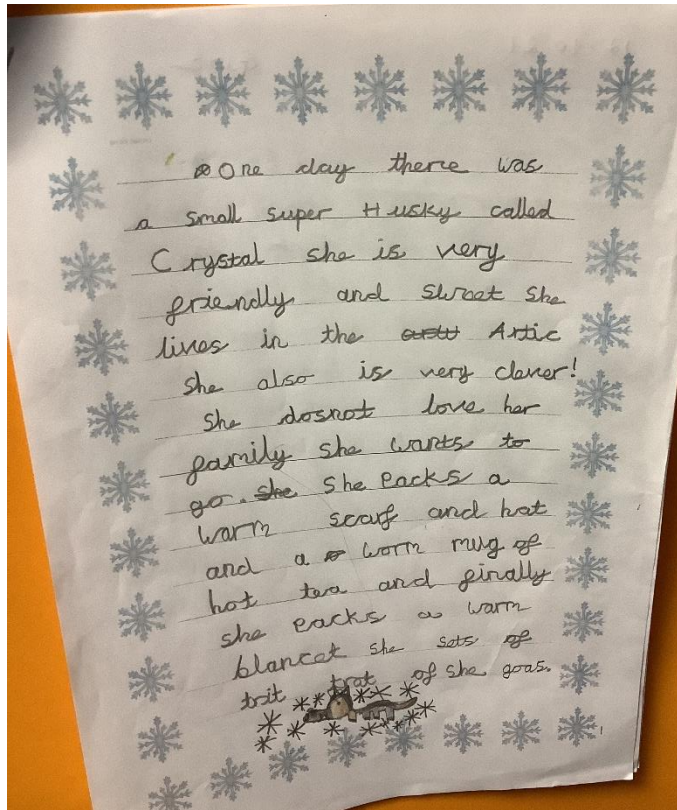 One day there was
a small super Husky called
Crystal she is very
friendly and sweet she
lives in the Artic
she also is very clever!
She dosnot love her
family she wants to
go. She packs a
warm scarf and hat
and a worm mug of
hot tea and finally
she packs a warm
blancet she sets of
trit trat of she goas.